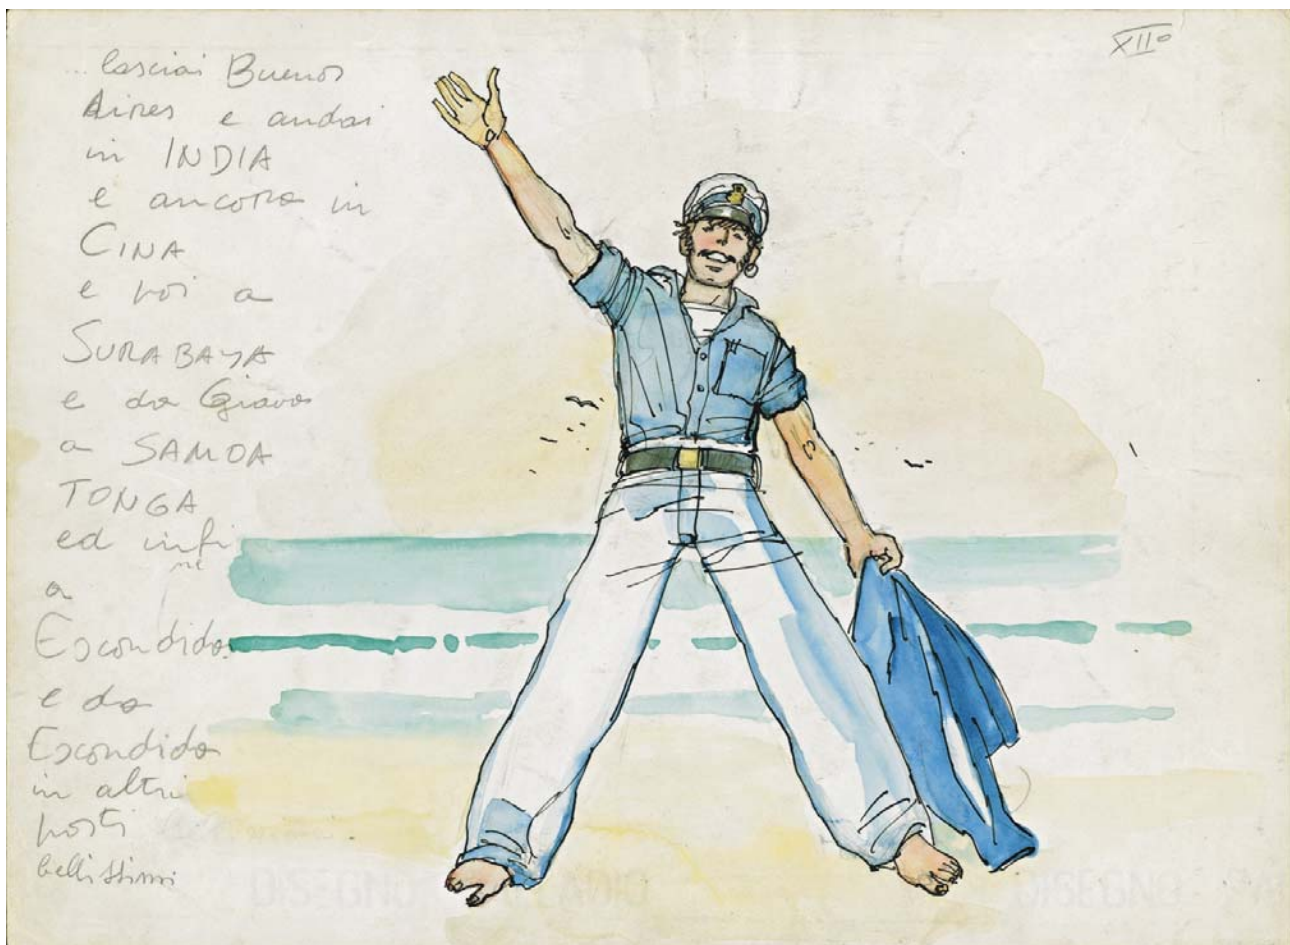 XII°
... lasciai Buenos
Aires e andai
in INDIA
e ancora in
CINA
e poi a
SURABAYA
e da Giava
a SAMOA
TONGA
ed infi
ne
a
Escondida
e da
Escondida
in altri
posti
bellissimi
DISEGNO
DISEGNO